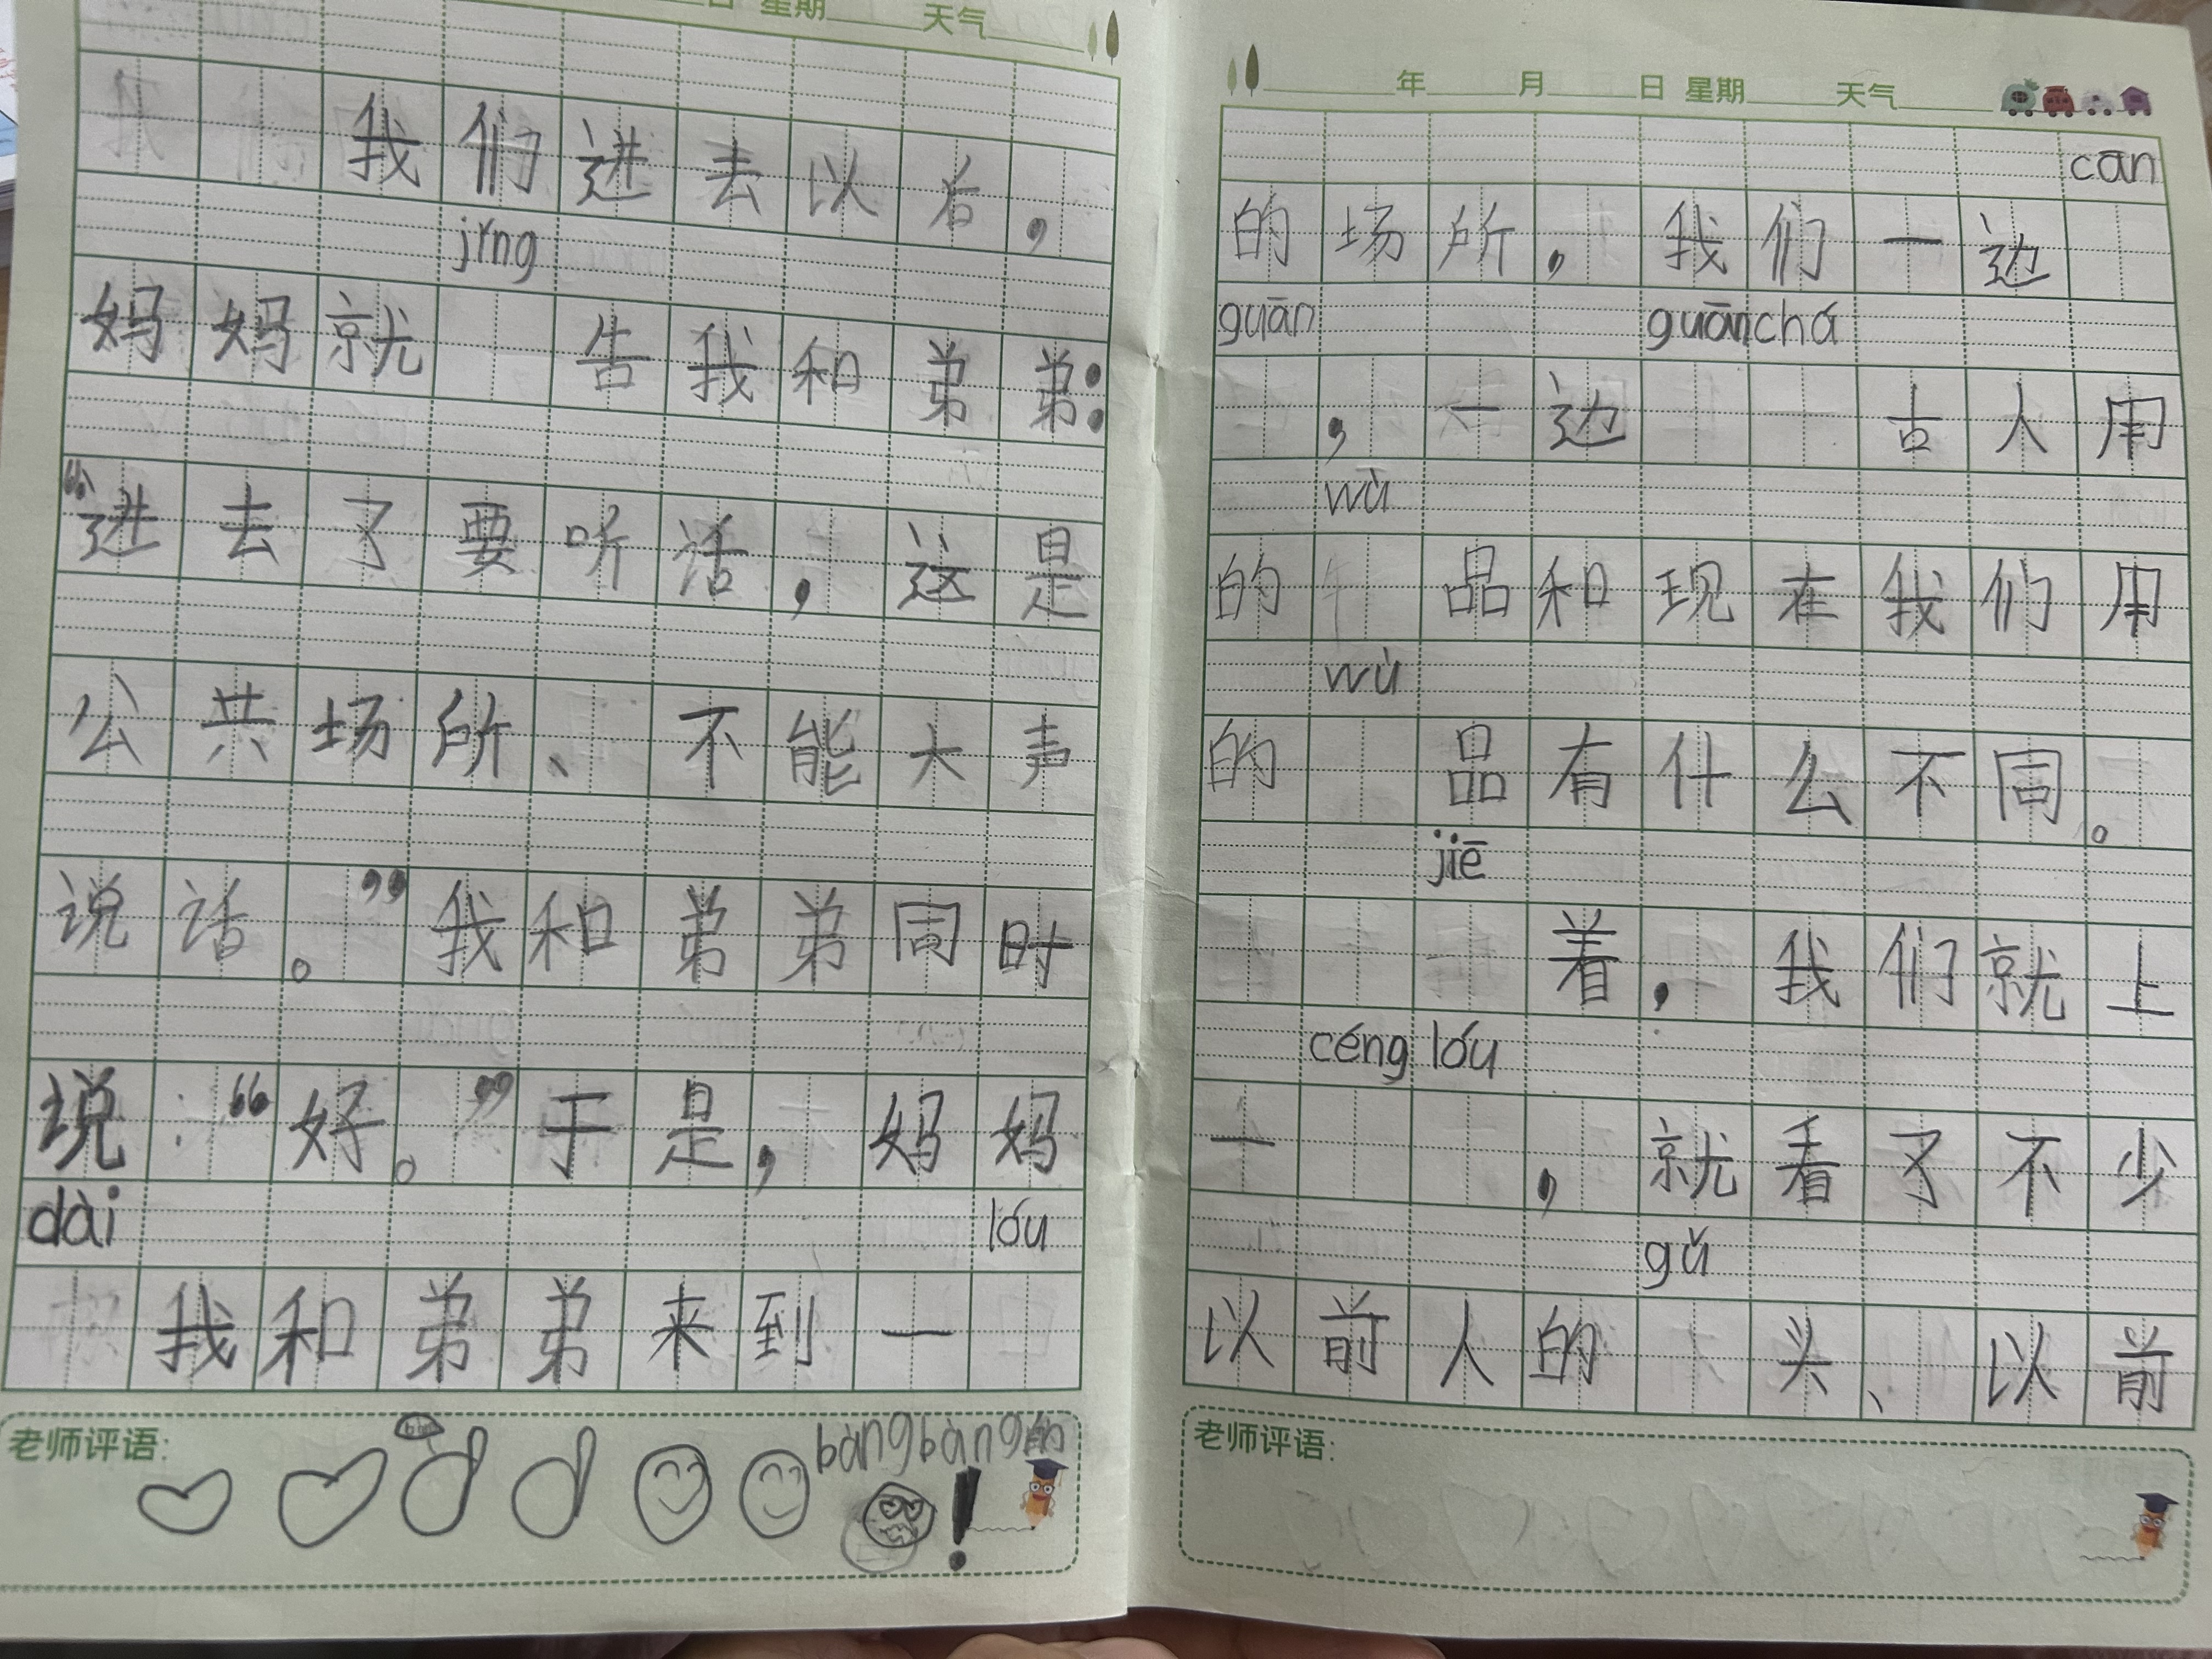 日 星期 天气
我们进去以后,
jǐng
妈妈就 告我和弟弟:
“进去了要听话,这是
公共场所、不能大声
说话。”我和弟弟同时
说:“好。”于是,妈妈
dài lóu
我和弟弟来到一
老师评语:
bàngbàng的
!
年 月 日 星期 天气
cān
的场所,我们一边
guān guānchá
,一边 古人用
wù
的 品和现在我们用
wù
的 品有什么不同。
jiē
着,我们就上
céng lóu
一 ,就看了不少
gǔ
以前人的 头、以前
老师评语: